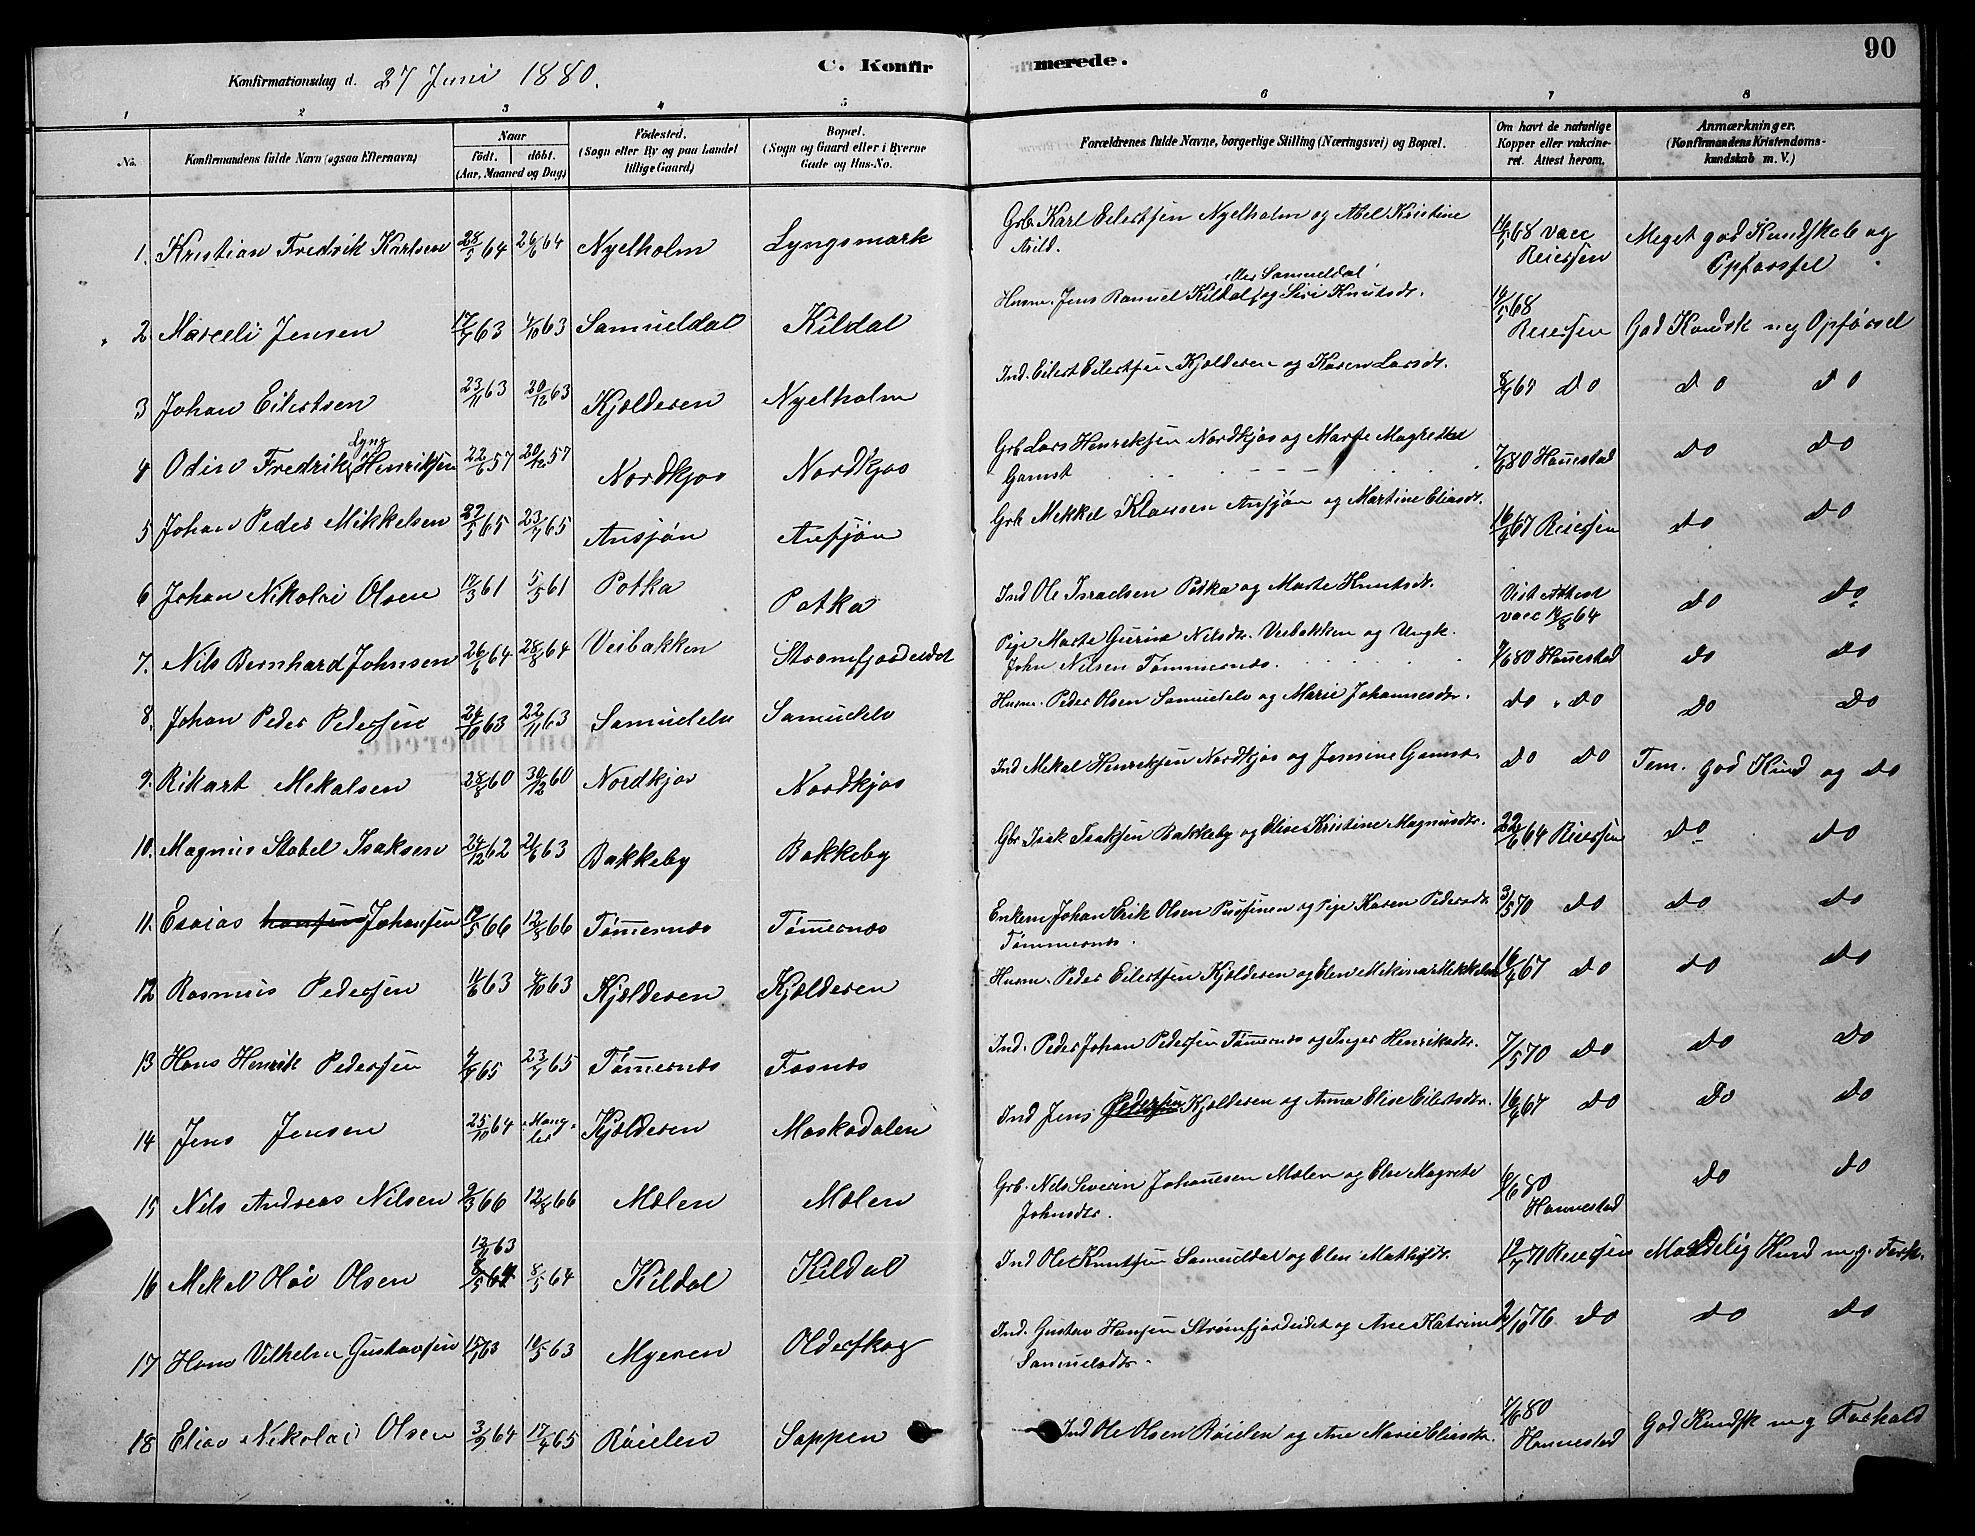 90
Konfirmationsdag d. 27 Juni 1880.
C. Konfirmerede.
1 2 3 4 5 6 7 8
No.
Konfirmandens fulde Navn (ogsaa Efternavn)
Naar
födt. döbt.
(Aar, Maaned og Dag)
Födested.
(Sogn eller By og paa Landet
tillige Gaard)
Bopæl.
(Sogn og Gaard eller i Byerne
Gade og Hus-No.
Forældrenes fulde Navne, borgerlige Stilling (Næringsvei) og Bopæl.
Om havt de naturlige
Kopper eller vakcine-
ret. Attest herom.
Anmærkninger.
(Konfirmandens Kristendoms-
kundskab m. V.)
1. Kristian Fredrik Karlsen 28/5 64 26/6 64 Nyelholm Lyngsmark Grb. Karl Eilertsen Nyelholm og Abel Kristine
Arild. 16/5 68 vacc Reiersen Meget god Kundskab og
Opførsel
2 Marceli Jensen 63 4/10 63 Samueldal Kildal Husm. Jens Samuel Kildal eller Samueldal og Siri Knutsdr. 16/5 68
Reiersen God Kundsk n g Opførsel
3 Johan Eilertsen 23/11 63 20/12 63 Kjælderen Nyelholm Ind. Eilert Eilertsen Kjælderen og Karen Larsdr. 67 do do do
4 Odin Fredrik Lyng Henriksen 22/6 57 20/12 57 Nordkjos Nordkjos Grb Lars Henriksen Nordkjos og Marte Magrethe
Gamst 7/6 80 Hannestad do do
5 Johan Peder Mikkelsen 65 23/7 65 Ansjøn Ansjøn Grb Mekkel Klausen Ansjøn og Martine Eliasdr. 67 Reiersen do do
6 Johan Nikolai Olsen 61 5/5 61 Potka Potka Ind Ole Israelsen Potka og Marte Knutsdr. Vist Attest
vacc 64 do do
7. Nils Bernhard Johnsen 64 28/8 64 Veibakken Strømfjordeidet Pige Marte Gurine Nilsdr. Veibakken og Ungk.
John Nilsen Tømmernes. 80 Hannestad do do
8. Johan Peder Pedersen 24/10 63 22/11 63 Samuelelv Samuelelv Husm. Peder Olsen Samuelelv og Marie Johannesdr. do do do do
9. Rikart Mekalsen 28/8 60 30/12 60 Nordkjos Nordkjos Ind Mekal Henriksen Nordkjos og Jensine Gamst. do do Tem. god Kund og do
10. Magnus Stabel Isaksen 24/12 62 63 Bakkeby Bakkeby Gbr Isak Isaksen Bakkeby og Elise Kristine Magnusdr. 22/6 64 Reiersen do do
11. Esaias Johansen 66 66 Tømernes Tømernes Enkem Johan Erik Olsen og Pige Karen Pedersdr.
Tømmernes. 9/5 70 do do do
12 Rasmus Pedersen 11/6 63 4/10 63 Kjælderen Kjælderen Husm. Peder Eilertsen Kjelderen og Elen 67 do do do
13 Hans Henrik Pedersen 65 23/7 65 Tømernes Fosnes Ind. Peder Johan Pedersen Tømernes og Inger Henriksdr. 7/5 70 do do do
14 Jens Jensen 25/10 64 Mang-
ler Kjælderen Maskadalen Ind Jens Pedersen Kjælderen og Anna Elise Eilertsdr. 67 do do do
15 Nils Andreas Nilsen 66 12/8 66 Mælen Mælen Grb. Nils Severin Johannesen Mælen og Else Magrete
Johnsdr. 6/6 80
Hannestad do do
16 Mekal Høi Olsen 63
64 8/5 64 Kildal Kildal Ind Ole Knutsen Samueldal og Elen Mathisdr. 71 Reiersen Maadelig Kund m g. Forh.
17 Hans Vilhelm Gustavsen 63 63 Myeren Olderskog Ind. Gustav Hansen Strømfjordeidet og Ane Katrine
Samuelsdr. 76 do do do
18 Elias Nikolai Olsen 64 17/4 65 Røielen Soppen Ind Ole Olsen Røielen og Ane Marie Eliasdr. 7/6 80
Hannestad God Kundsk m g Forhold